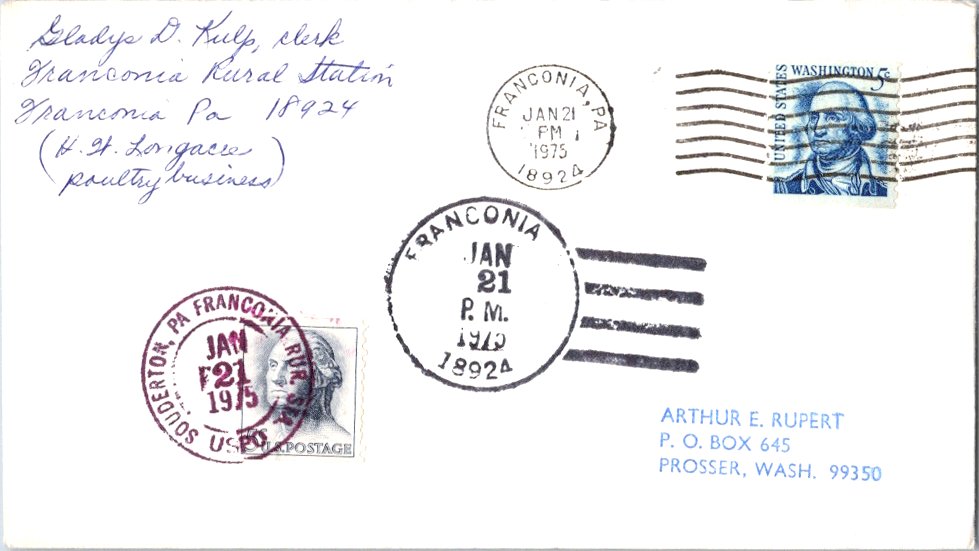 Gladys D. Kulp, clerk
Franconia Rural Station
Franconia Pa 18924
(H. H. Longacre)
poultry business)
FRANCONIA, PA
JAN 21
PM
1975
18924
UNITED STATES
WASHINGTON 5¢
FRANCONIA
JAN
21
P.M.
1975
18924
SOUDERTON, PA FRANCONIA RUR. STA.
JAN
21
1975
USPO
U.S. POSTAGE
ARTHUR E. RUPERT
P. O. BOX 645
PROSSER, WASH. 99350